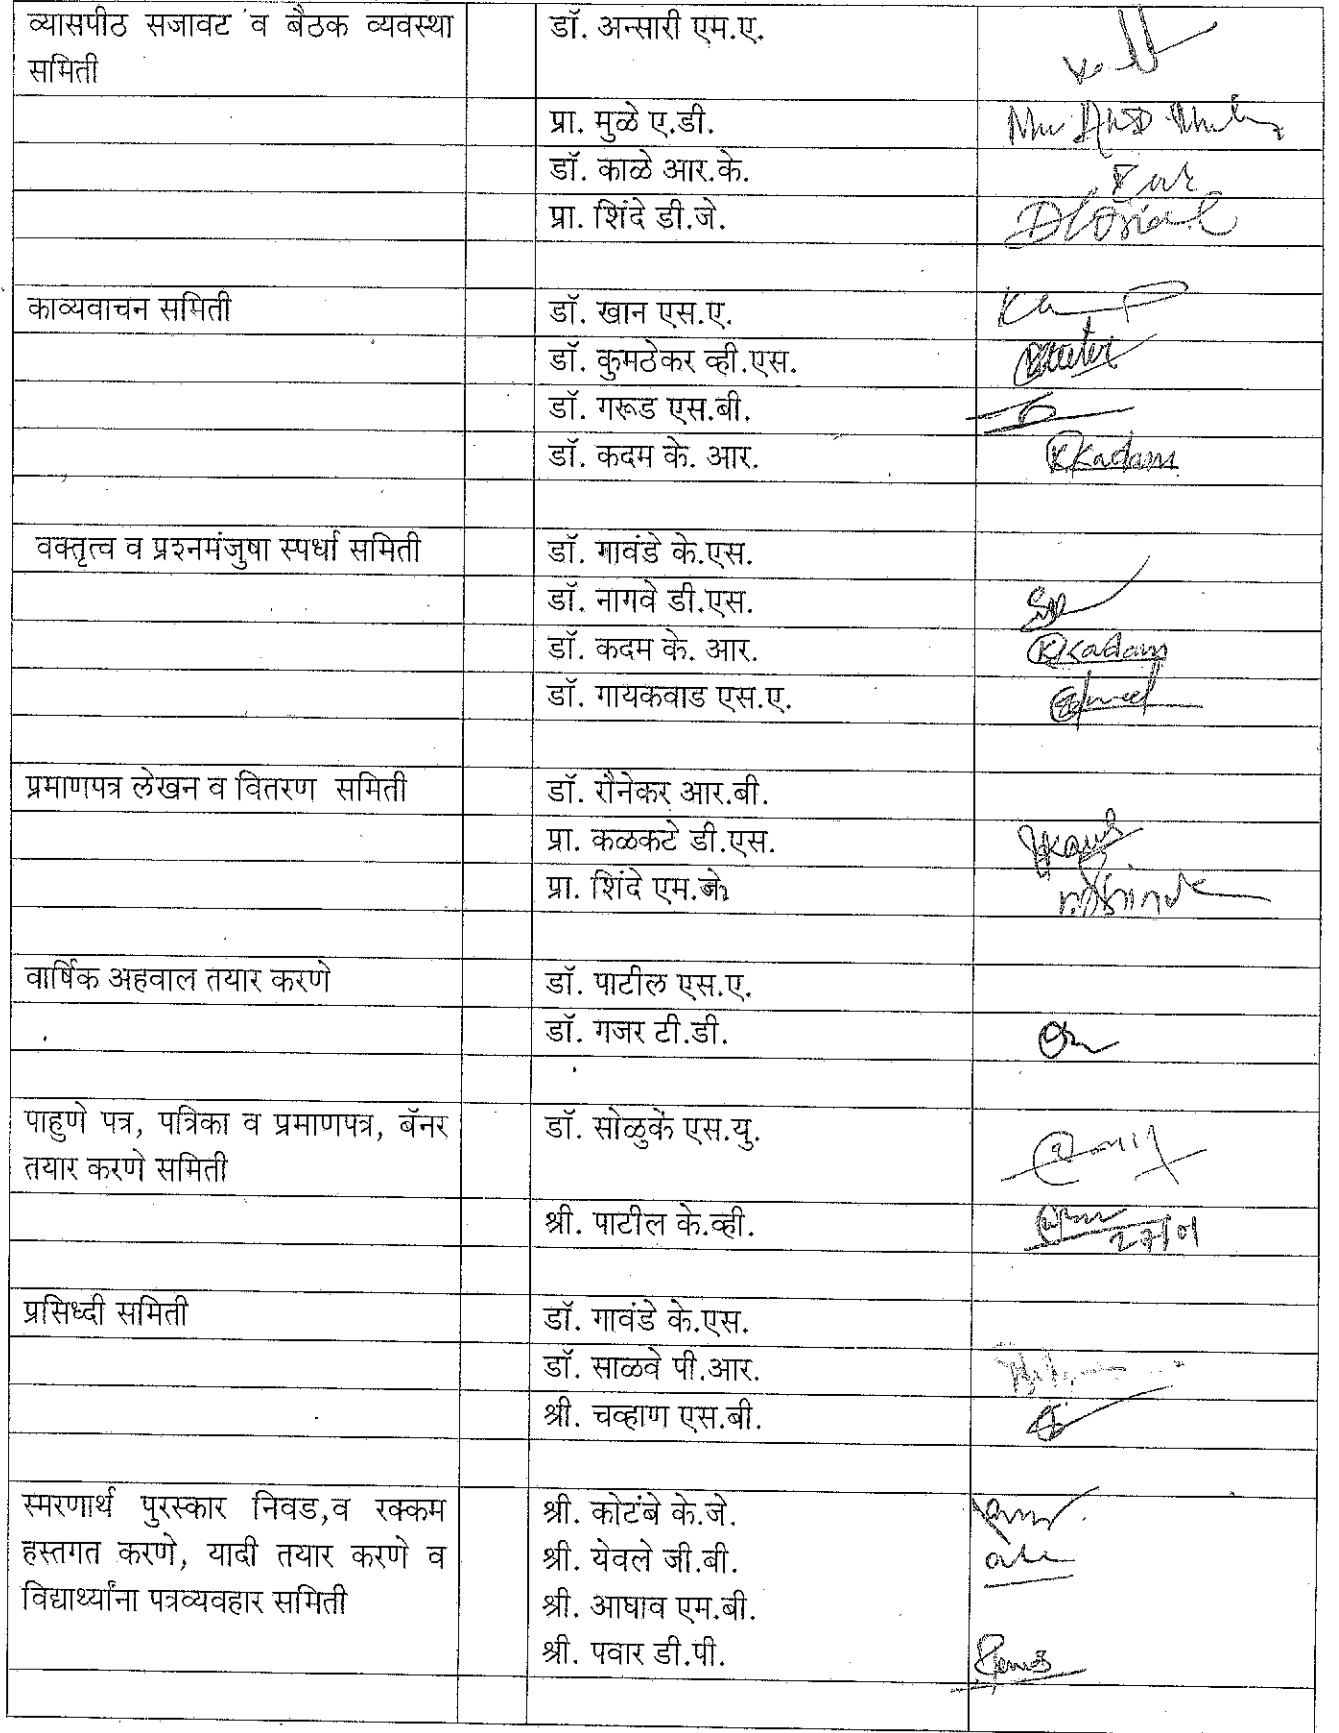 व्यासपीठ सजावट व बैठक व्यवस्था
समिती
डॉ. अन्सारी एम.ए.
प्रा. मुळे ए.डी.
डॉ. काळे आर.के.
प्रा. शिंदे डी.जे.
काव्यवाचन समिती
डॉ. खान एस.ए.
डॉ. कुमठेकर व्ही.एस.
डॉ. गरूड एस.बी.
डॉ. कदम के. आर.
KKadam
वक्तृत्व व प्रश्नमंजुषा स्पर्धा समिती
डॉ. गावंडे के.एस.
डॉ. नागवे डी.एस.
डॉ. कदम के. आर.
KKadam
डॉ. गायकवाड एस.ए.
प्रमाणपत्र लेखन व वितरण समिती
डॉ. रौनेकर आर.बी.
प्रा. कळकटे डी.एस.
प्रा. शिंदे एम.के
वार्षिक अहवाल तयार करणे
डॉ. पाटील एस.ए.
डॉ. गजर टी.डी.
पाहुणे पत्र, पत्रिका व प्रमाणपत्र, बॅनर
तयार करणे समिती
डॉ. सोळुके एस.यु.
श्री. पाटील के.व्ही.
27/01
प्रसिध्दी समिती
डॉ. गावंडे के.एस.
डॉ. साळवे पी.आर.
श्री. चव्हाण एस.बी.
स्मरणार्थ पुरस्कार निवड,व रक्कम
हस्तगत करणे, यादी तयार करणे व
विद्यार्थ्यांना पत्रव्यवहार समिती
श्री. कोटंबे के.जे.
श्री. येवले जी.बी.
श्री. आघाव एम.बी.
श्री. पवार डी.पी.